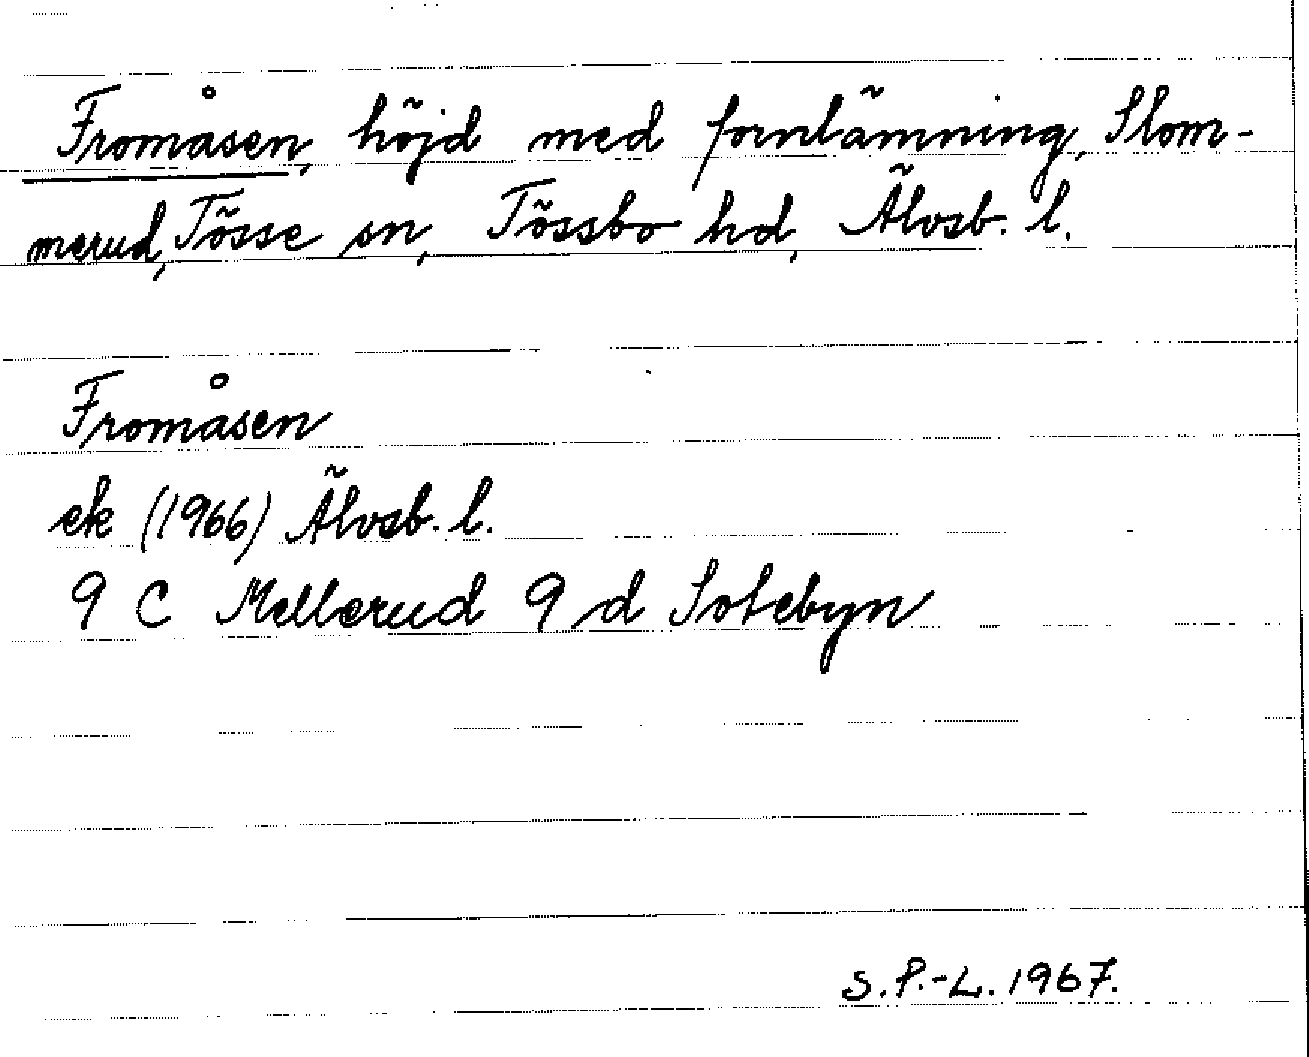 Fromåsen, höjd med fornlämning, Slom-
merud, Tösse sn, Tössbo hd, Älvsb. l.
Fromåsen
ek (1966) Älvsb. l.
9 C Mellerud 9 d Sotebyn
S.P.-L. 1967.